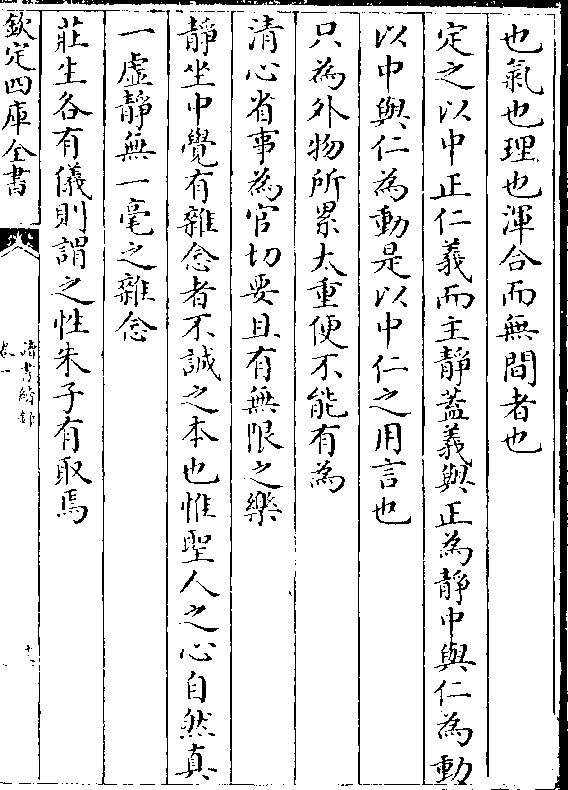 也氣也理也渾合而無間者也
定之以中正仁義而主靜蓋義與正為靜中與仁為動
以中與仁為動是以中仁之用言也
只為外物所累太重便不能有為
清心省事為官切要且有無限之樂
靜坐中覺有雜念者不誠之本也惟聖人之心自然真
一虛靜無一毫之雜念
莊生各有儀則謂之性朱子有取焉
欽定四庫全書
讀書續錄
卷一